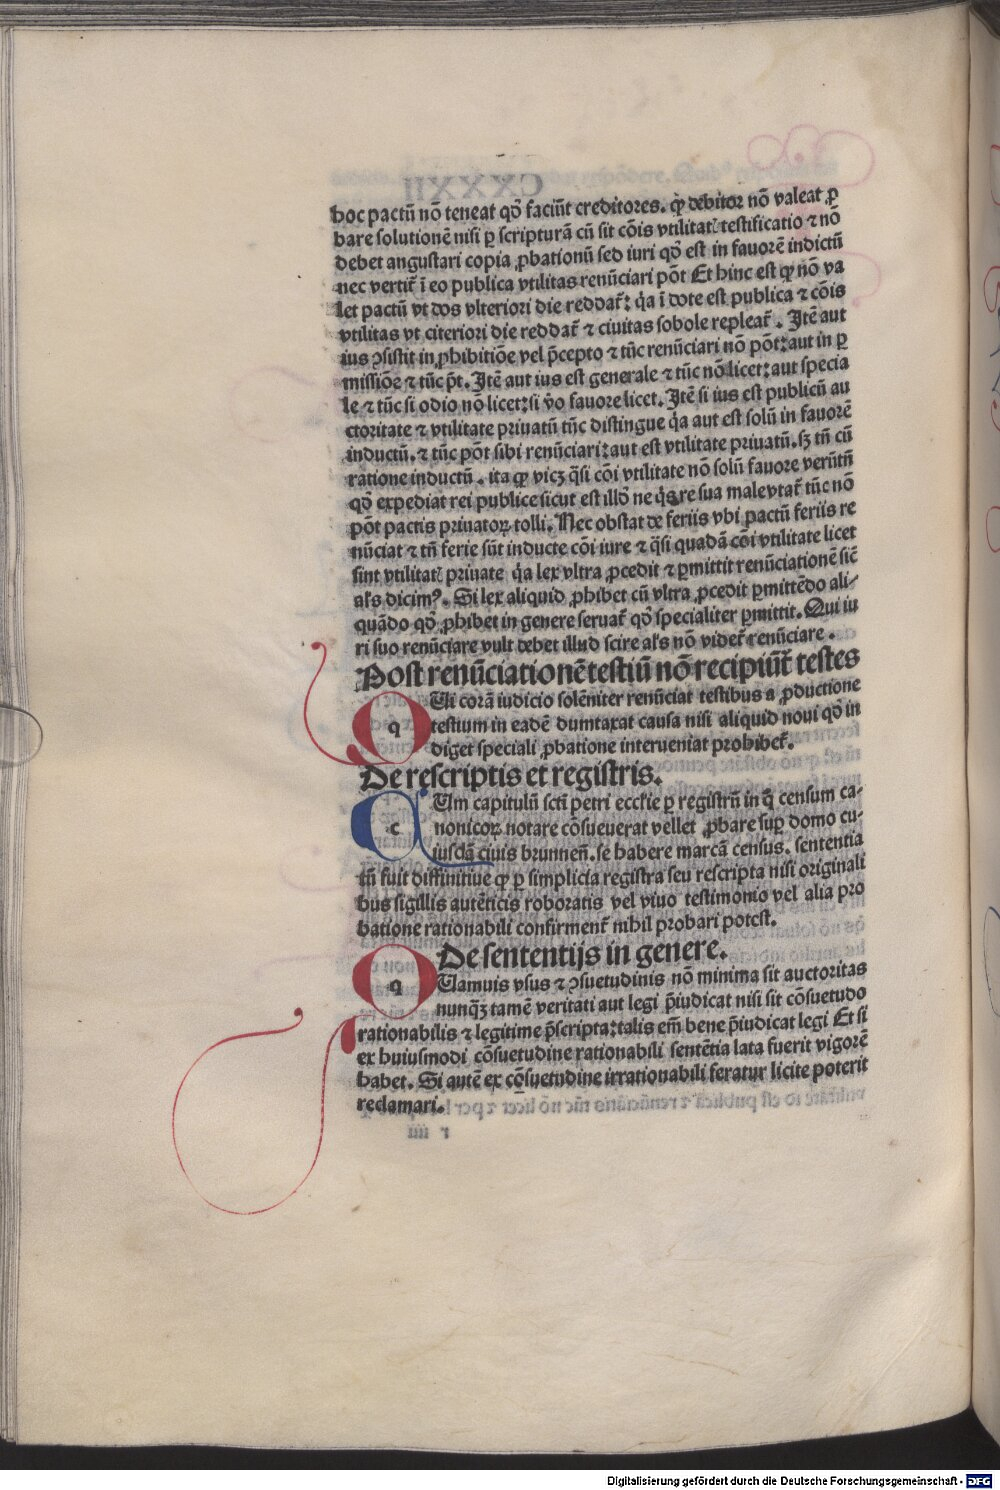 hoc pactū nō teneat qꝺ faciūt creditores. ꝙ debitor nō valeat ꝓ
bare solutionē nisi ꝑ scripturā cū sit cōis vtilitatꝭ testificatio ⁊ nō
debet angustari copia ꝓbationū sed iuri qꝺ est in fauorē indictū
nec vertit̄ ī eo publica vtilitas renūciari pōt Et hinc est ꝙ nō va
let pactū vt dos vlteriori die reddat̄: q̄a ī dote est publica ⁊ cōis
vtilitas vt citeriori die reddat̄ ⁊ ciuitas sobole repleat̄. Itē aut
ius ꝯsistit in ꝓhibitiōe vel p̄cepto ⁊ tūc renūciari nō pōt: aut in ꝑ
missiōe ⁊ tūc p̄t. Itē aut ius est generale ⁊ tūc nō licet: aut specia
le ⁊ tūc si odio nō licet: si v̄o fauore licet. Itē si ius est publicū au
ctoritate ⁊ vtilitate priuatū tūc distingue q̄a aut est solū in fauorē
inductū. ⁊ tūc pōt sibi renūciari: aut est vtilitate priuatū. sꝫ tn̄ cū
ratione inductū. ita ꝙ vicꝫ q̄si cōi vtilitate nō solū fauore verūtn̄
qꝺ expediat rei publice sicut est illō ne q̄s re sua male vtat̄ tūc nō
pōt pactis priuatoꝝ tolli. Nec obstat de feriis vbi pactū feriis re
nūciat ⁊ tn̄ ferie sūt inducte cōi iure ⁊ q̄si quadā cōi vtilitate licet
sint vtilitatꝭ priuate q̄a lex vltra ꝓcedit ⁊ ꝑmittit renūciationē sic̄
al̄s dicimꝰ. Si lex aliquid ꝓhibet cū vltra ꝓcedit ꝑmittēdo ali-
quādo qꝺ ꝓhibet in genere seruat̄ qꝺ specialiter ꝑmittit. Qui iu
ri suo renūciare vult debet illud scire al̄s nō videt̄ renūciare.
Post renūciationē testiū nō recipiūt̄ testes
q Ui corā iudicio solēniter renūciat testibus a ꝓductione
testium in eadē dumtaxat causa nisi aliquid noui qꝺ in
diget speciali ꝓbatione interueniat prohibet̄.
De rescriptis et registris.
c Um capitulū sctī petri eccl̄ie ꝑ registrū in q̄ censum ca-
nonicoꝝ notare cōsueuerat vellet ꝓbare suꝑ domo cu-
iusdā ciuis brunnen̄. se habere marcā census. sententia
tn̄ fuit diffinitiue ꝙ ꝑ simplicia registra seu rescripta nisi originali
bus sigillis autēticis roboratis vel viuo testimonio vel alia pro
batione rationabili confirment̄ nihil probari potest.
De sententijs in genere.
q Uamuis vsus ⁊ ꝯsuetudinis nō minima sit auctoritas
nunq̄ꝫ tamē veritati aut legi p̄iudicat nisi sit cōsuetudo
rationabilis ⁊ legitime p̄scripta: talis em̄ bene p̄iudicat legi Et si
ex huiusmodi cōsuetudine rationabili sentētia lata fuerit vigorē
habet. Si autē ex cōsuetudine irrationabili feratur licite poterit
reclamari.
Digitalisierung gefördert durch die Deutsche Forschungsgemeinschaft - DFG